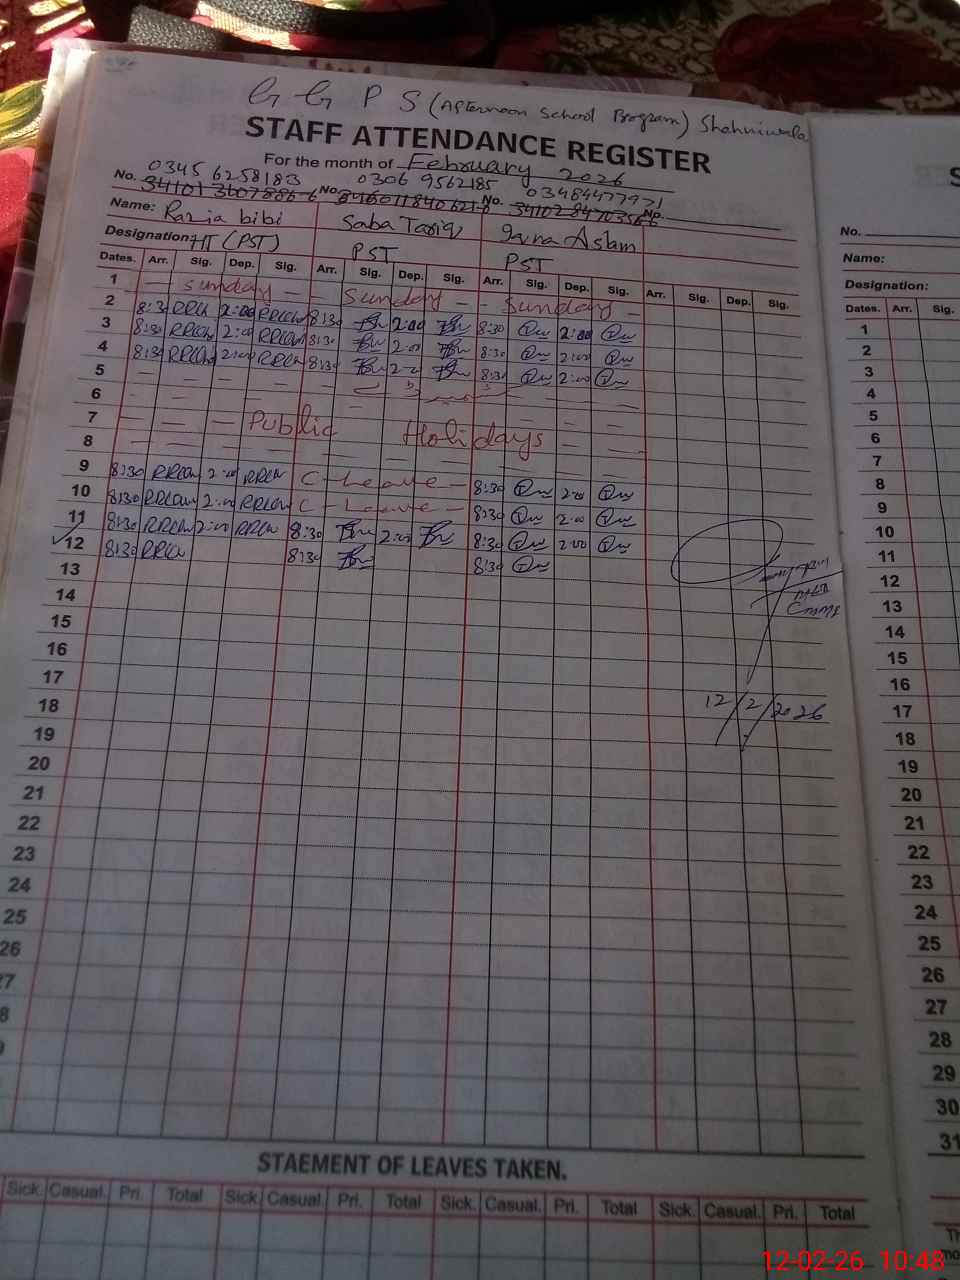 G G P S (Afternoon School Program) Shahniwala
STAFF ATTENDANCE REGISTER
For the month of February 2026
0345 6258183 0306 9562185 03484477971
No. 34101 3607886-6 No. No. 34102 8470356 No.
Name: Razia bibi Saba Tariq Iqra Aslam
Designation: HT (PST) PST PST
Dates. Arr. Sig. Dep. Sig. Arr. Sig. Dep. Sig. Arr. Sig. Dep. Sig. Arr. Sig. Dep. Sig.
1 — Sunday — — Sunday — — Sunday —
2 8:30 2:00 8:30 2:00 8:30 2:00
3 8:30 2:00 8:30 2:00 8:30 2:00
4 8:30 2:00 8:30 2:00 8:30 2:00
5
6
7 Public Holidays
8
9 8:30 2:00 C-Leave — 8:30 2:00
10 8:30 2:00 C-Leave — 8:30 2:00
11 8:30 2:00 8:30 2:00 8:30 2:00
12 8:30 8:30 8:30
13
14
15
16
17
18 12/2/2026
19
20
21
22
23
24
25
26
27
8
9
STAEMENT OF LEAVES TAKEN.
Sick. Casual. Pri. Total Sick. Casual. Pri. Total Sick. Casual. Pri. Total Sick. Casual. Pri. Total
S
No.
Name:
Designation:
Dates. Arr. Sig.
1
2
3
4
5
6
7
8
9
10
11
12
13
14
15
16
17
18
19
20
21
22
23
24
25
26
27
28
29
30
31
12-02-26 10:48